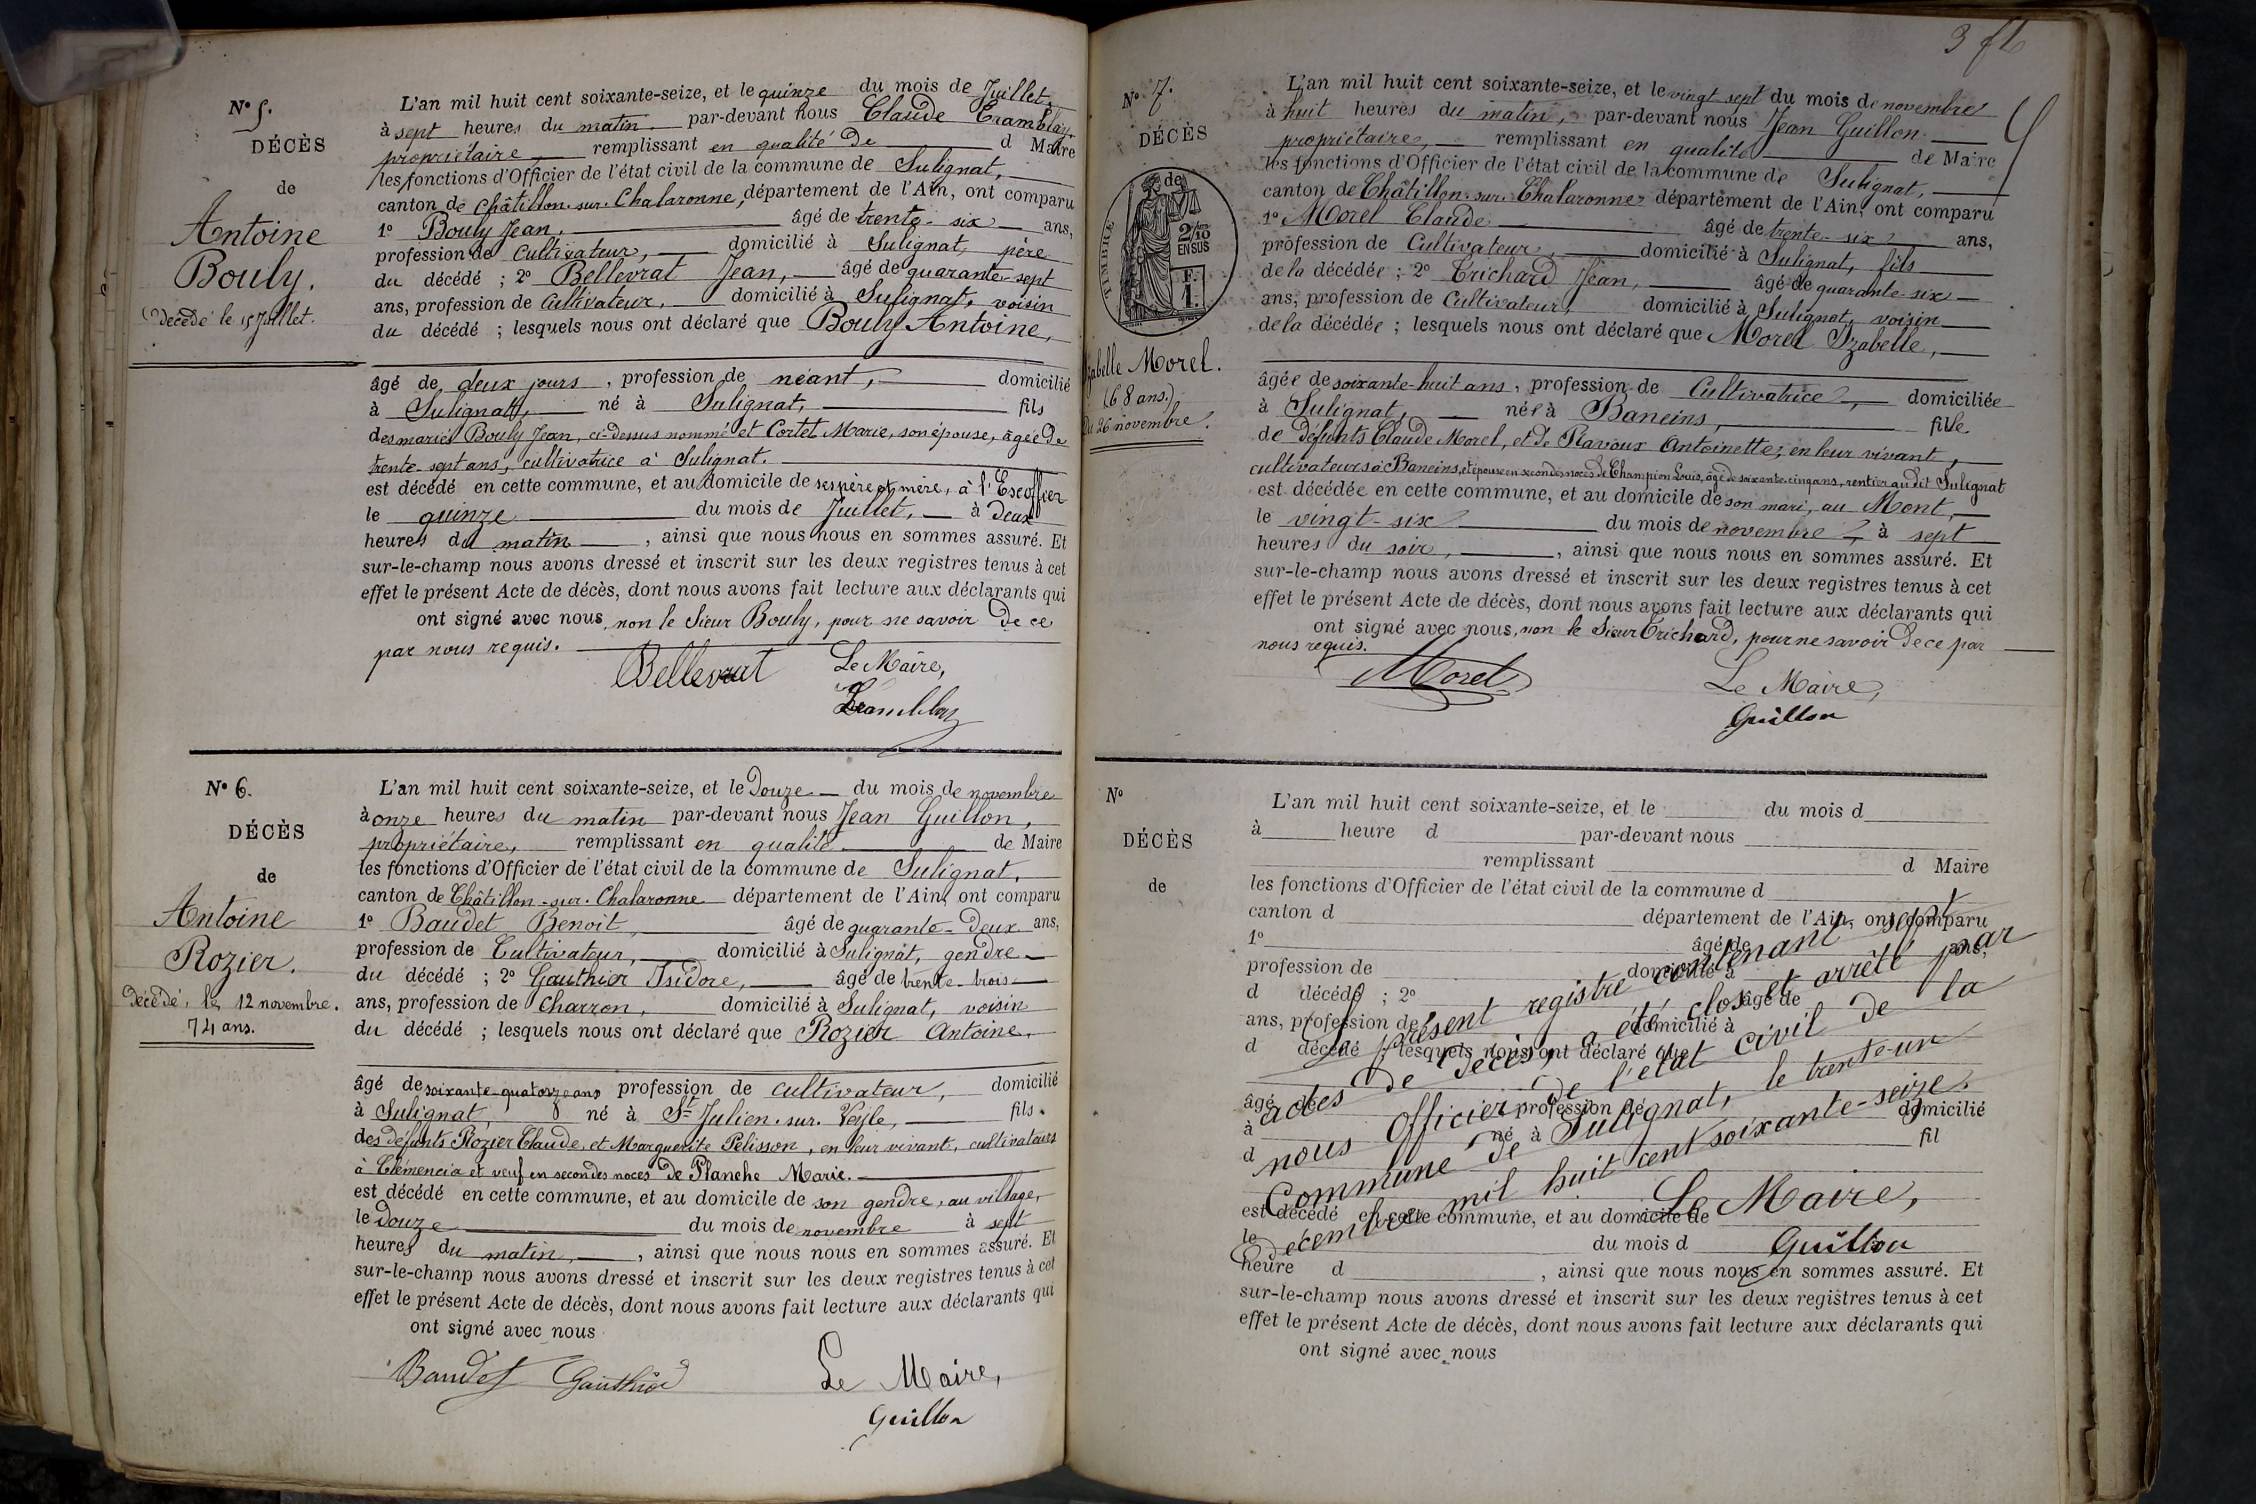 N° 5.
DÉCÈS
de
Antoine
Bouly.
Décédé le 15 Juillet.
L'an mil huit cent soixante-seize, et le quinze du mois de Juillet,
à sept heures du matin par-devant nous Claude Tramblay,
propriétaire remplissant en qualité de d Maire
les fonctions d'Officier de l'état civil de la commune de Sulignat,
canton de Châtillon-sur-Chalaronne, département de l'Ain, ont comparu
1° Bouly Jean, âgé de trente-six ans,
profession de Cultivateur, domicilié à Sulignat, père
du décédé ; 2° Bellevrat Jean, âgé de quarante-sept
ans, profession de Cultivateur, domicilié à Sulignat, voisin
du décédé ; lesquels nous ont déclaré que Bouly Antoine,
âgé de deux jours, profession de néant, domicilié
à Sulignat, né à Sulignat, fils
des mariés Bouly Jean, ci-dessus nommé et Cortet Marie, son épouse, âgée de
trente-sept ans, cultivatrice à Sulignat.
est décédé en cette commune, et au domicile de ses père et mère, à l'Escoffier
le quinze du mois de Juillet, à deux
heures du matin, ainsi que nous nous en sommes assuré. Et
sur-le-champ nous avons dressé et inscrit sur les deux registres tenus à cet
effet le présent Acte de décès, dont nous avons fait lecture aux déclarants qui
ont signé avec nous, non le Sieur Bouly, pour ne savoir de ce
par nous requis.
Bellevrat Le Maire,
Tramblay
N° 6.
DÉCÈS
de
Antoine
Rozier.
Décédé, le 12 novembre.
74 ans.
L'an mil huit cent soixante-seize, et le Douze du mois de novembre
à onze heures du matin par-devant nous Jean Guillon,
propriétaire, remplissant en qualité de Maire
les fonctions d'Officier de l'état civil de la commune de Sulignat,
canton de Châtillon-sur-Chalaronne département de l'Ain, ont comparu
1° Baudet Benoit, âgé de quarante-deux ans,
profession de Cultivateur, domicilié à Sulignat, gendre
du décédé ; 2° Gauthier Isidore, âgé de trente-trois
ans, profession de Charron, domicilié à Sulignat, voisin
du décédé ; lesquels nous ont déclaré que Rozier Antoine,
âgé de soixante-quatorze ans profession de cultivateur, domicilié
à Sulignat, né à St Julien-sur-Veyle, fils
des défunts Rozier Claude, et Marguerite Pelisson, en leur vivant, cultivateurs
à Clémencia et veuf en secondes noces de Planche Marie.
est décédé en cette commune, et au domicile de son gendre, au village,
le douze du mois de novembre à sept
heures du matin, ainsi que nous nous en sommes assuré. Et
sur-le-champ nous avons dressé et inscrit sur les deux registres tenus à cet
effet le présent Acte de décès, dont nous avons fait lecture aux déclarants qui
ont signé avec nous
Baudet Gauthier Le Maire,
Guillon
N° 7.
DÉCÈS
de
TIMBRE
2/10
EN SUS
F.
1.
Izabelle Morel.
(68 ans.)
Du 26 novembre.
L'an mil huit cent soixante-seize, et le vingt sept du mois de novembre
à huit heures du matin, par-devant nous Jean Guillon
propriétaire, remplissant en qualité de Maire
les fonctions d'Officier de l'état civil de la commune de Sulignat,
canton de Châtillon-sur-Chalaronne département de l'Ain, ont comparu
1° Morel Claude âgé de trente-six ans,
profession de Cultivateur, domicilié à Sulignat, fils
de la décédée ; 2° Trichard Jean, âgé de quarante-six
ans, profession de Cultivateur, domicilié à Sulignat, voisin
de la décédée ; lesquels nous ont déclaré que Morel Izabelle,
âgée de soixante-huit ans, profession de Cultivatrice, domiciliée
à Sulignat, née à Baneins, fille
de défunts Claude Morel, et de Ravoux Antoinette, en leur vivant,
cultivateurs à Baneins, et épouse en secondes noces de Champion Louis, âgé de soixante-cinq ans, rentier audit Sulignat
est décédée en cette commune, et au domicile de son mari, au Mont,
le vingt-six du mois de novembre, à sept
heures du soir, ainsi que nous nous en sommes assuré. Et
sur-le-champ nous avons dressé et inscrit sur les deux registres tenus à cet
effet le présent Acte de décès, dont nous avons fait lecture aux déclarants qui
ont signé avec nous, non le Sieur Trichard, pour ne savoir de ce par
nous requis.
Morel Le Maire,
Guillon
N°
DÉCÈS
de
L'an mil huit cent soixante-seize, et le du mois d
à heure d par-devant nous
remplissant d Maire
les fonctions d'Officier de l'état civil de la commune d
canton d département de l'Ain, ont comparu
1° âgé de ans,
profession de domicilié à
d décédé ; 2° âgé de
ans, profession de domicilié à
d décédé ; lesquels nous ont déclaré que
âgé de profession de domicilié
à né à fil
d
est décédé en cette commune, et au domicile de
le du mois d
heure d , ainsi que nous nous en sommes assuré. Et
sur-le-champ nous avons dressé et inscrit sur les deux registres tenus à cet
effet le présent Acte de décès, dont nous avons fait lecture aux déclarants qui
ont signé avec nous
Le présent registre contenant sept
actes de décès, a été clos et arrêté par
nous Officier de l'état civil de la
Commune de Sulignat, le trente-un
décembre mil huit cent soixante-seize.
Le Maire,
Guillon